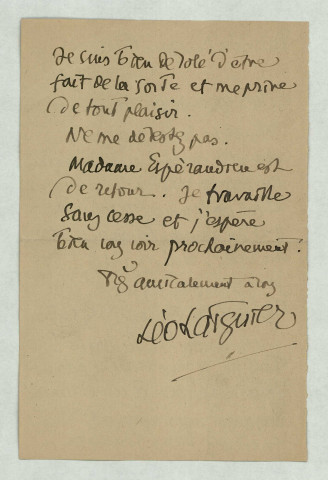 Je suis bien désolé d'être
fait de la sorte et me prive
de tout plaisir.
Ne me détestez pas.
Madame Espérandieu est
de retour. Je travaille
sans cesse et j'espère
bien vous voir prochainement.
Très amicalement à vous
Léo Larguier